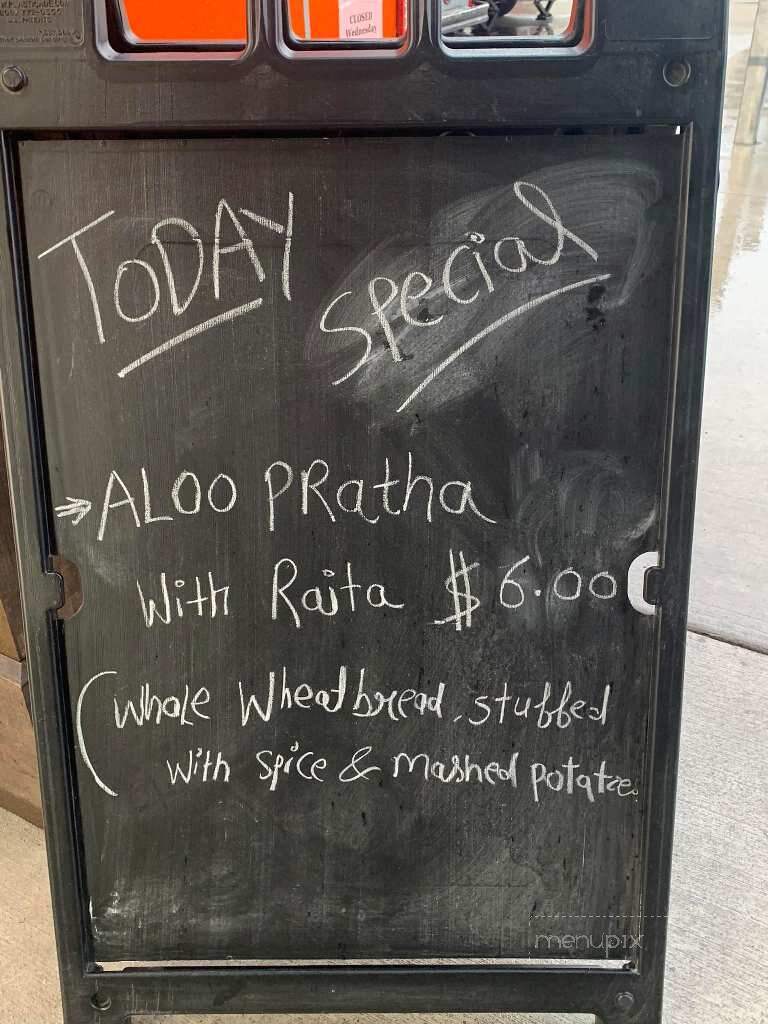 CLOSED
Wednesday
TODAY Special
→ALOO PRatha
With Raita $6.00
(Whole Wheat bread, stuffed
with spice & mashed potatoe
menupix